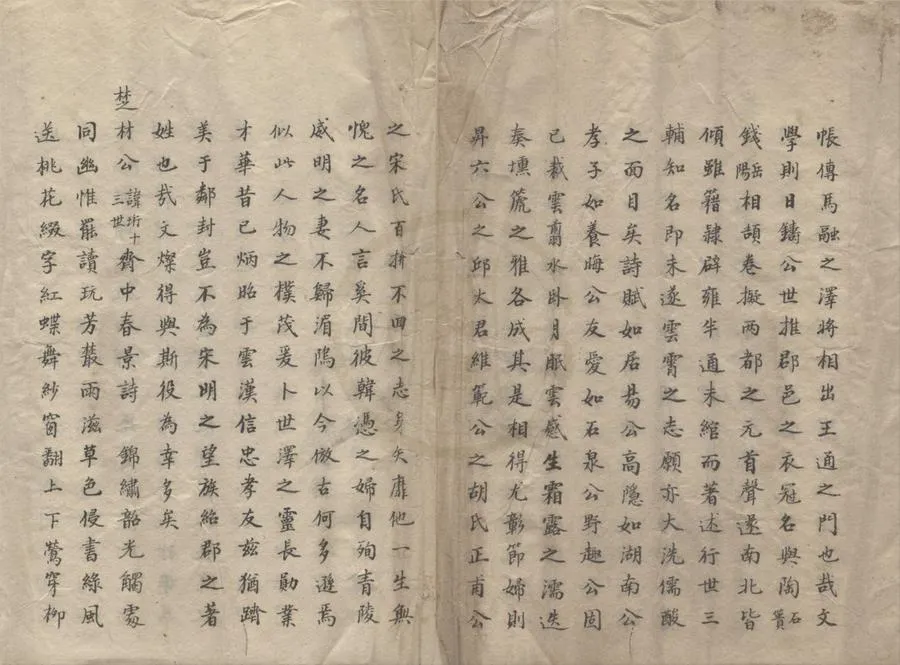 帳傳馬融之澤將相出王通之門也哉文
學則日鑄公世推郡邑之衣冠名與陶石簣
錢岳陽相頡卷擬兩都之元首聲遂南北皆
傾雖籍隸辟雍半通未綰而著述行世三
輔知名即未遂雲霄之志願亦大洗儒酸
之面目矣詩賦如居易公高隱如湖南公
孝子如養晦公友愛如石泉公野趣公固
已裁雲剪水卧月眠雲感生霜露之濡迭
奏壎箎之雅各成其是相得尤彰節婦則
昇六公之邱太君維範公之胡氏正甫公
之宋氏百折不囬之志身矢靡他一生無
愧之名人言奚間彼韓憑之婦自殉青陵
威明之妻不歸湄隖以今倣古何多遜焉
似此人物之樸茂爰卜世澤之靈長勛業
才華昔已炳昭于雲漢信忠孝友茲猶躋
美于鄰封豈不為宋明之望族紹郡之著
姓也哉文燦得與斯役為幸多矣
椘材公諱珩十三世齋中春景詩 錦繡韶光觸處
同幽惟罷讀玩芳叢雨滋草色侵書綠風
送桃花綴字紅蝶舞紗窗翻上下鶯穿柳